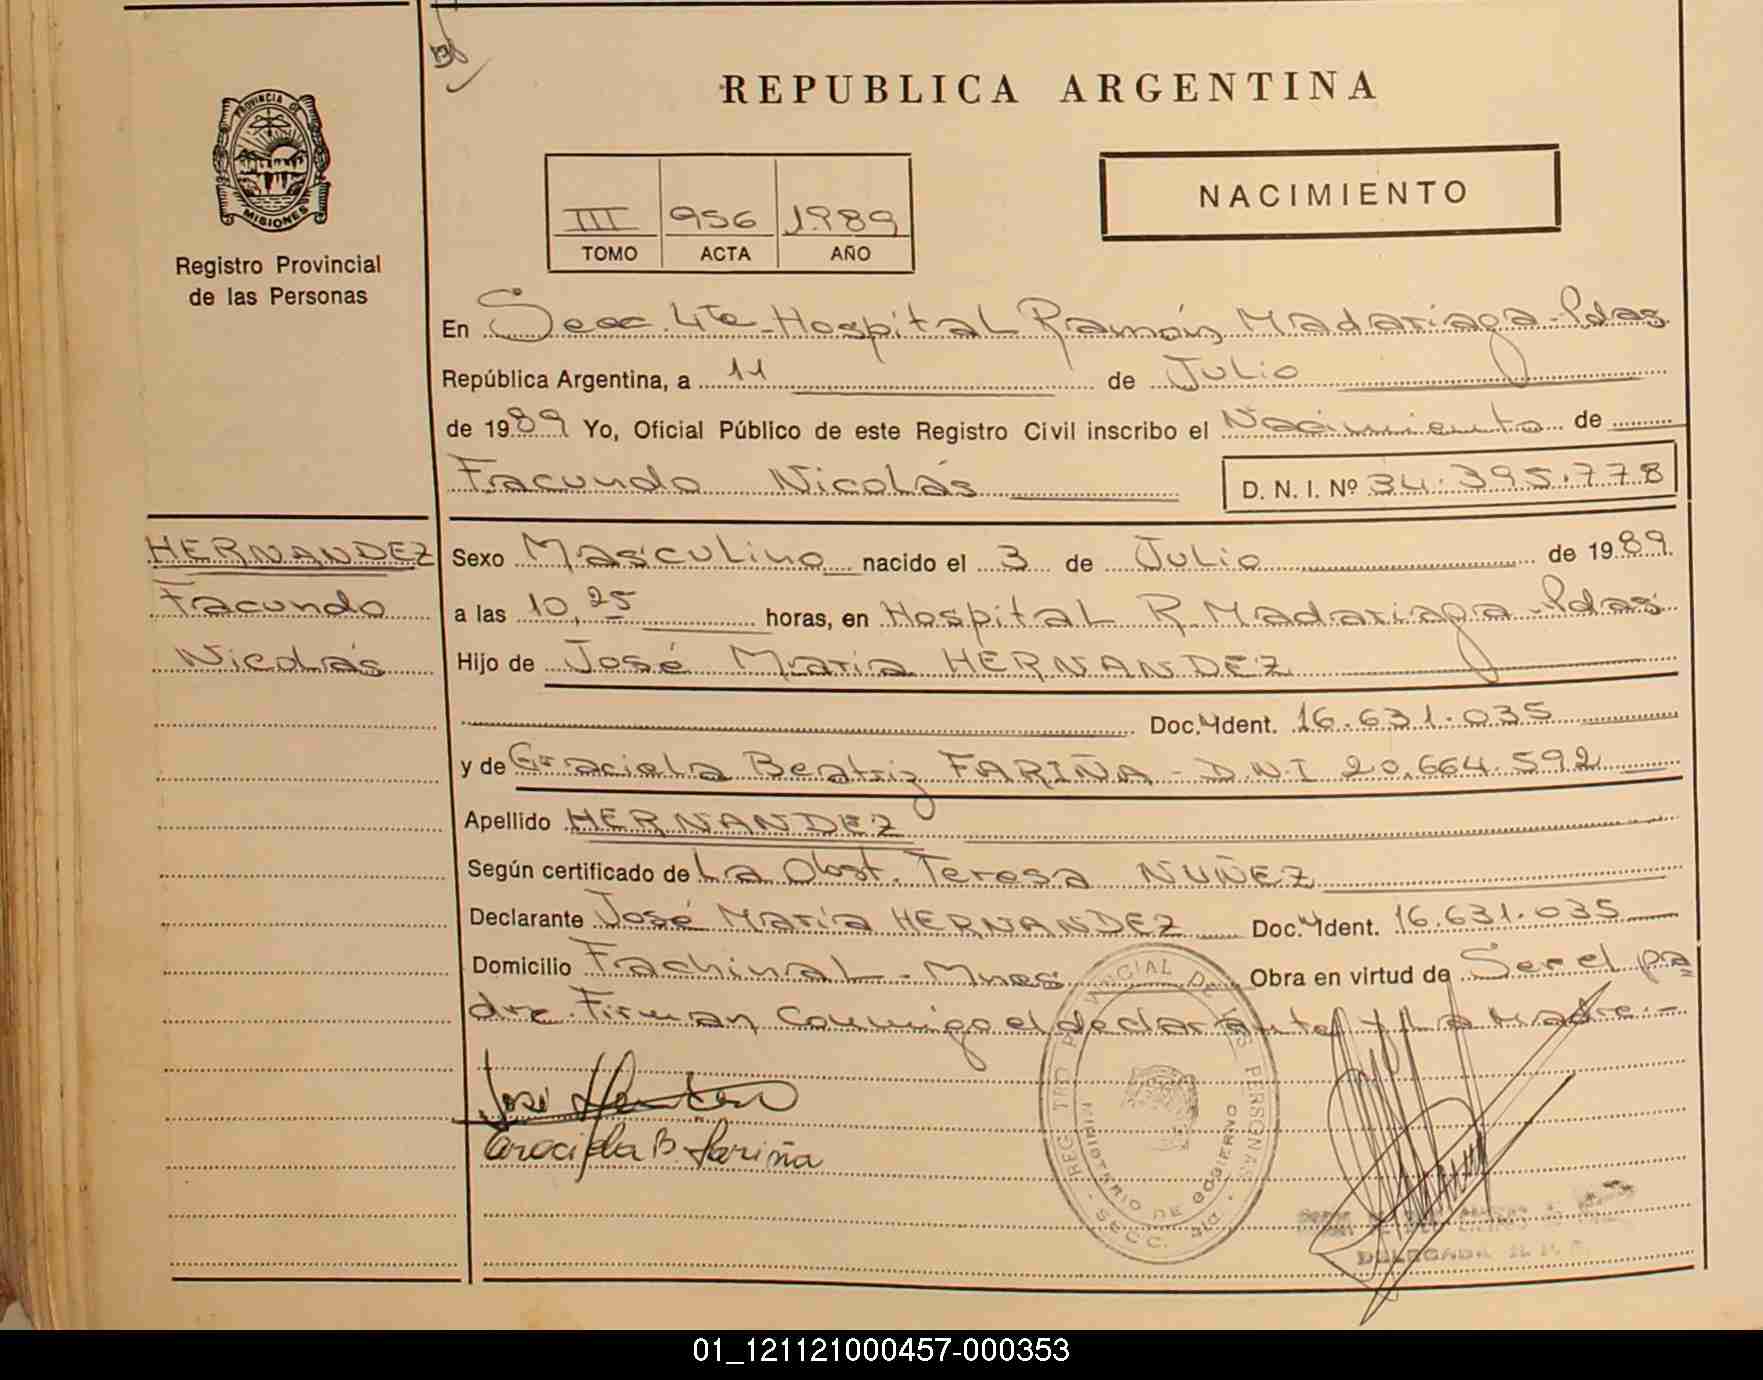 PROVINCIA DE
MISIONES
Registro Provincial
de las Personas
REPUBLICA ARGENTINA
III 956 1989
TOMO ACTA AÑO
NACIMIENTO
En Secc. 4te Hospital Ramón Madariaga - Pdas
República Argentina, a 11 de Julio
de 1989 Yo, Oficial Público de este Registro Civil inscribo el Nacimiento de
Facundo Nicolás D. N. I. Nº 34.395.778
HERNANDEZ
Facundo
Nicolás
Sexo Masculino nacido el 3 de Julio de 1989
a las 10,25 horas, en Hospital R. Madariaga - Pdas
Hijo de José Maria HERNANDEZ
Doc. Ident. 16.631.035
y de Graciela Beatriz FARIÑA - D.N.I 20.664.592
Apellido HERNANDEZ
Según certificado de La Obst. Teresa NUÑEZ
Declarante José María HERNANDEZ Doc. Ident. 16.631.035
Domicilio Fachinal - Mnes Obra en virtud de Ser el pa
dre. Firman Conmigo el declarante y La Madre.-
José
Graciela B. Fariña
REGISTRO PROVINCIAL DE LAS PERSONAS
MINISTERIO DE GOBIERNO
SECC.
DELEGADA
01_121121000457-000353